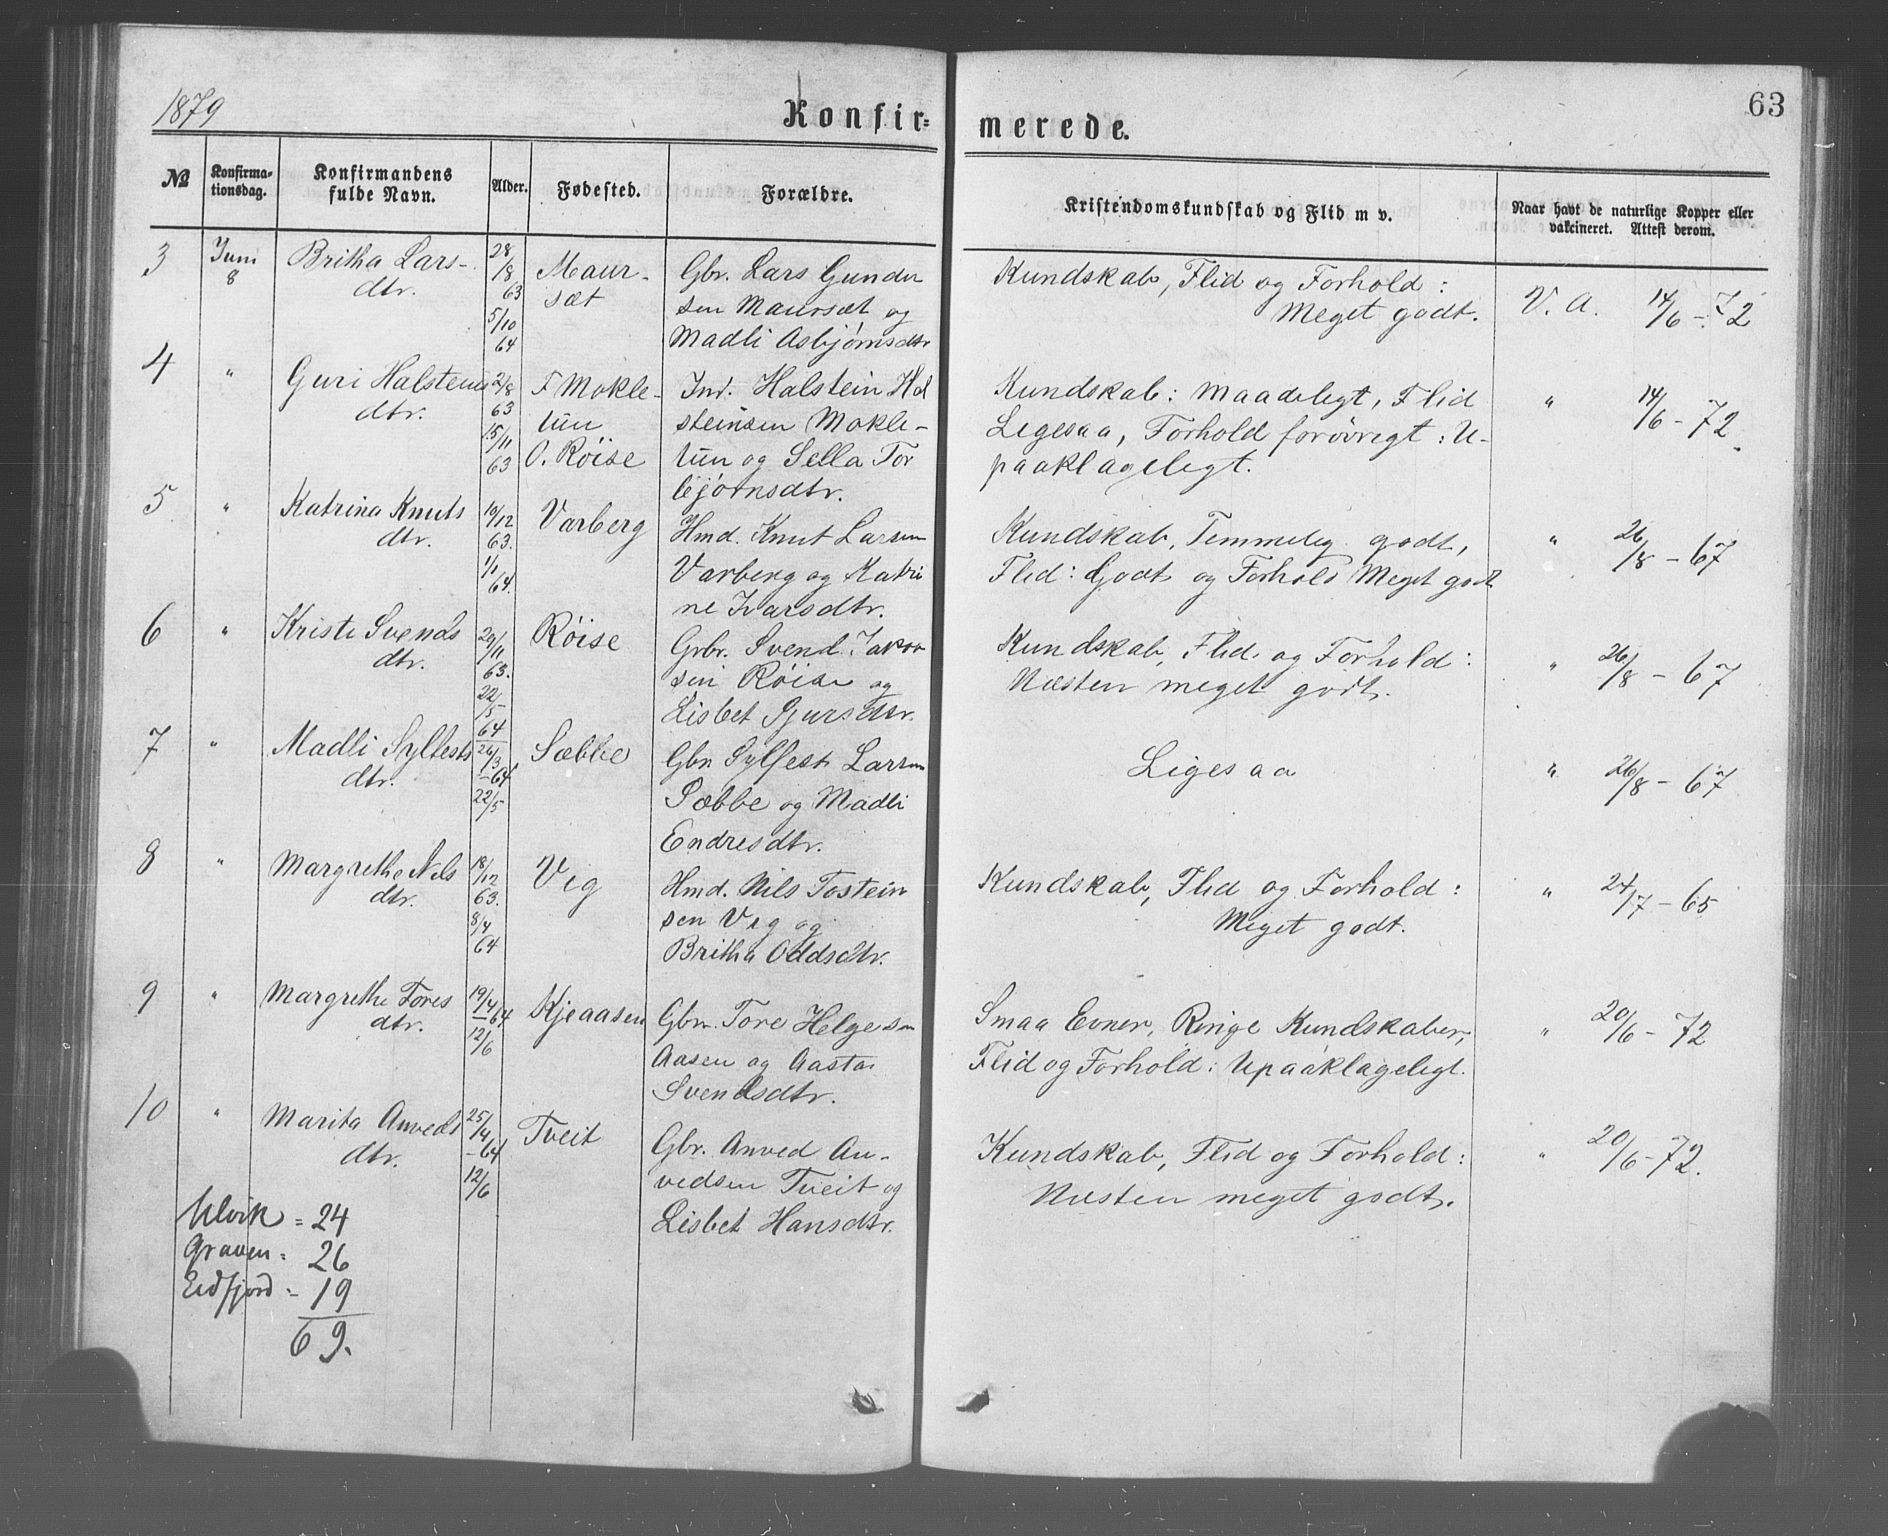 1879
Konfir=
merede.
63
№
Konfirma-
tionsdag.
Konfirmandens
fulde Navn.
Alder.
Fødested.
Forældre.
Kristendomskundskab og Flid m v.
Naar havt de naturlige Kopper eller
vakcineret. Attest derom.
3
Juni
8
Britha Lars-
dtr.
28/8
63
5/10
64
Maur-
sæt
Gbr. Lars Gunder
sen Maursæt og
Madli Asbjörnsdtr
Kundskab, Flid og Forhold:
Meget godt.
V. A. 14/6 - 72
4
"
Guri Halsteins
dtr.
2/8
63
15/11
63
F Mokle-
tun
O. Röise
Ind. Halstein Hal
steinsen Mokle-
tun og Sella Tor
bjørnsdtr.
Kundskab: Maadeligt, Flid
Ligesaa, Forhold forövrigt: U-
paaklageligt.
" 14/6 - 72
5
"
Katrina Knuts
dtr.
10/12
63.
1/1
64.
Varberg
Hmd. Knut Larsen
Varberg og Katri
ne Ivarsdtr.
Kundskab, Temmelig godt,
Flid: Godt og Forhold Meget godt
" 26/8 - 67
6
"
Kristi Svends
dtr.
29/11
63.
22/5
64
Röise
Grbr. Svend Jakob
sen Röise og
Lisbet Sjursdtr.
Kundskab, Flid og Forhold:
Næsten meget godt.
" 26/8 - 67
7
"
Madli Sylfests
dtr.
26/3
-64
22/5
Sæbbe
Gbr. Sylfest Larsen
Sæbbe og Madli
Endresdtr.
Ligesaa
" 26/8 - 67
8
"
Margrethe Nils
dtr.
18/12
63.
8/4
64
Vig
Hmd. Nils Tostein
sen Vig og
Britha Oddsdtr.
Kundskab, Flid og Forhold:
Meget godt.
" 24/7 - 65
9
"
Margrethe Tores
dtr.
19/4
-64
12/6
Kjeaasen
Gbr. Tore Helgesen
Aasen og Aasta
Svendsdtr.
Smaa Evner, Ringe Kundskaber,
Flid og Forhold: Upaaklageligt.
" 20/6 - 72
10
"
Marita Anveds
dtr.
25/4
-64
12/6
Tveit
Gbr. Anved An-
vedsen Tveit og
Lisbet Hansdtr.
Kundskab, Flid og Forhold:
Næsten meget godt.
" 20/6 - 72.
Ulvik = 24
Graven = 26
Eidfjord = 19
69.